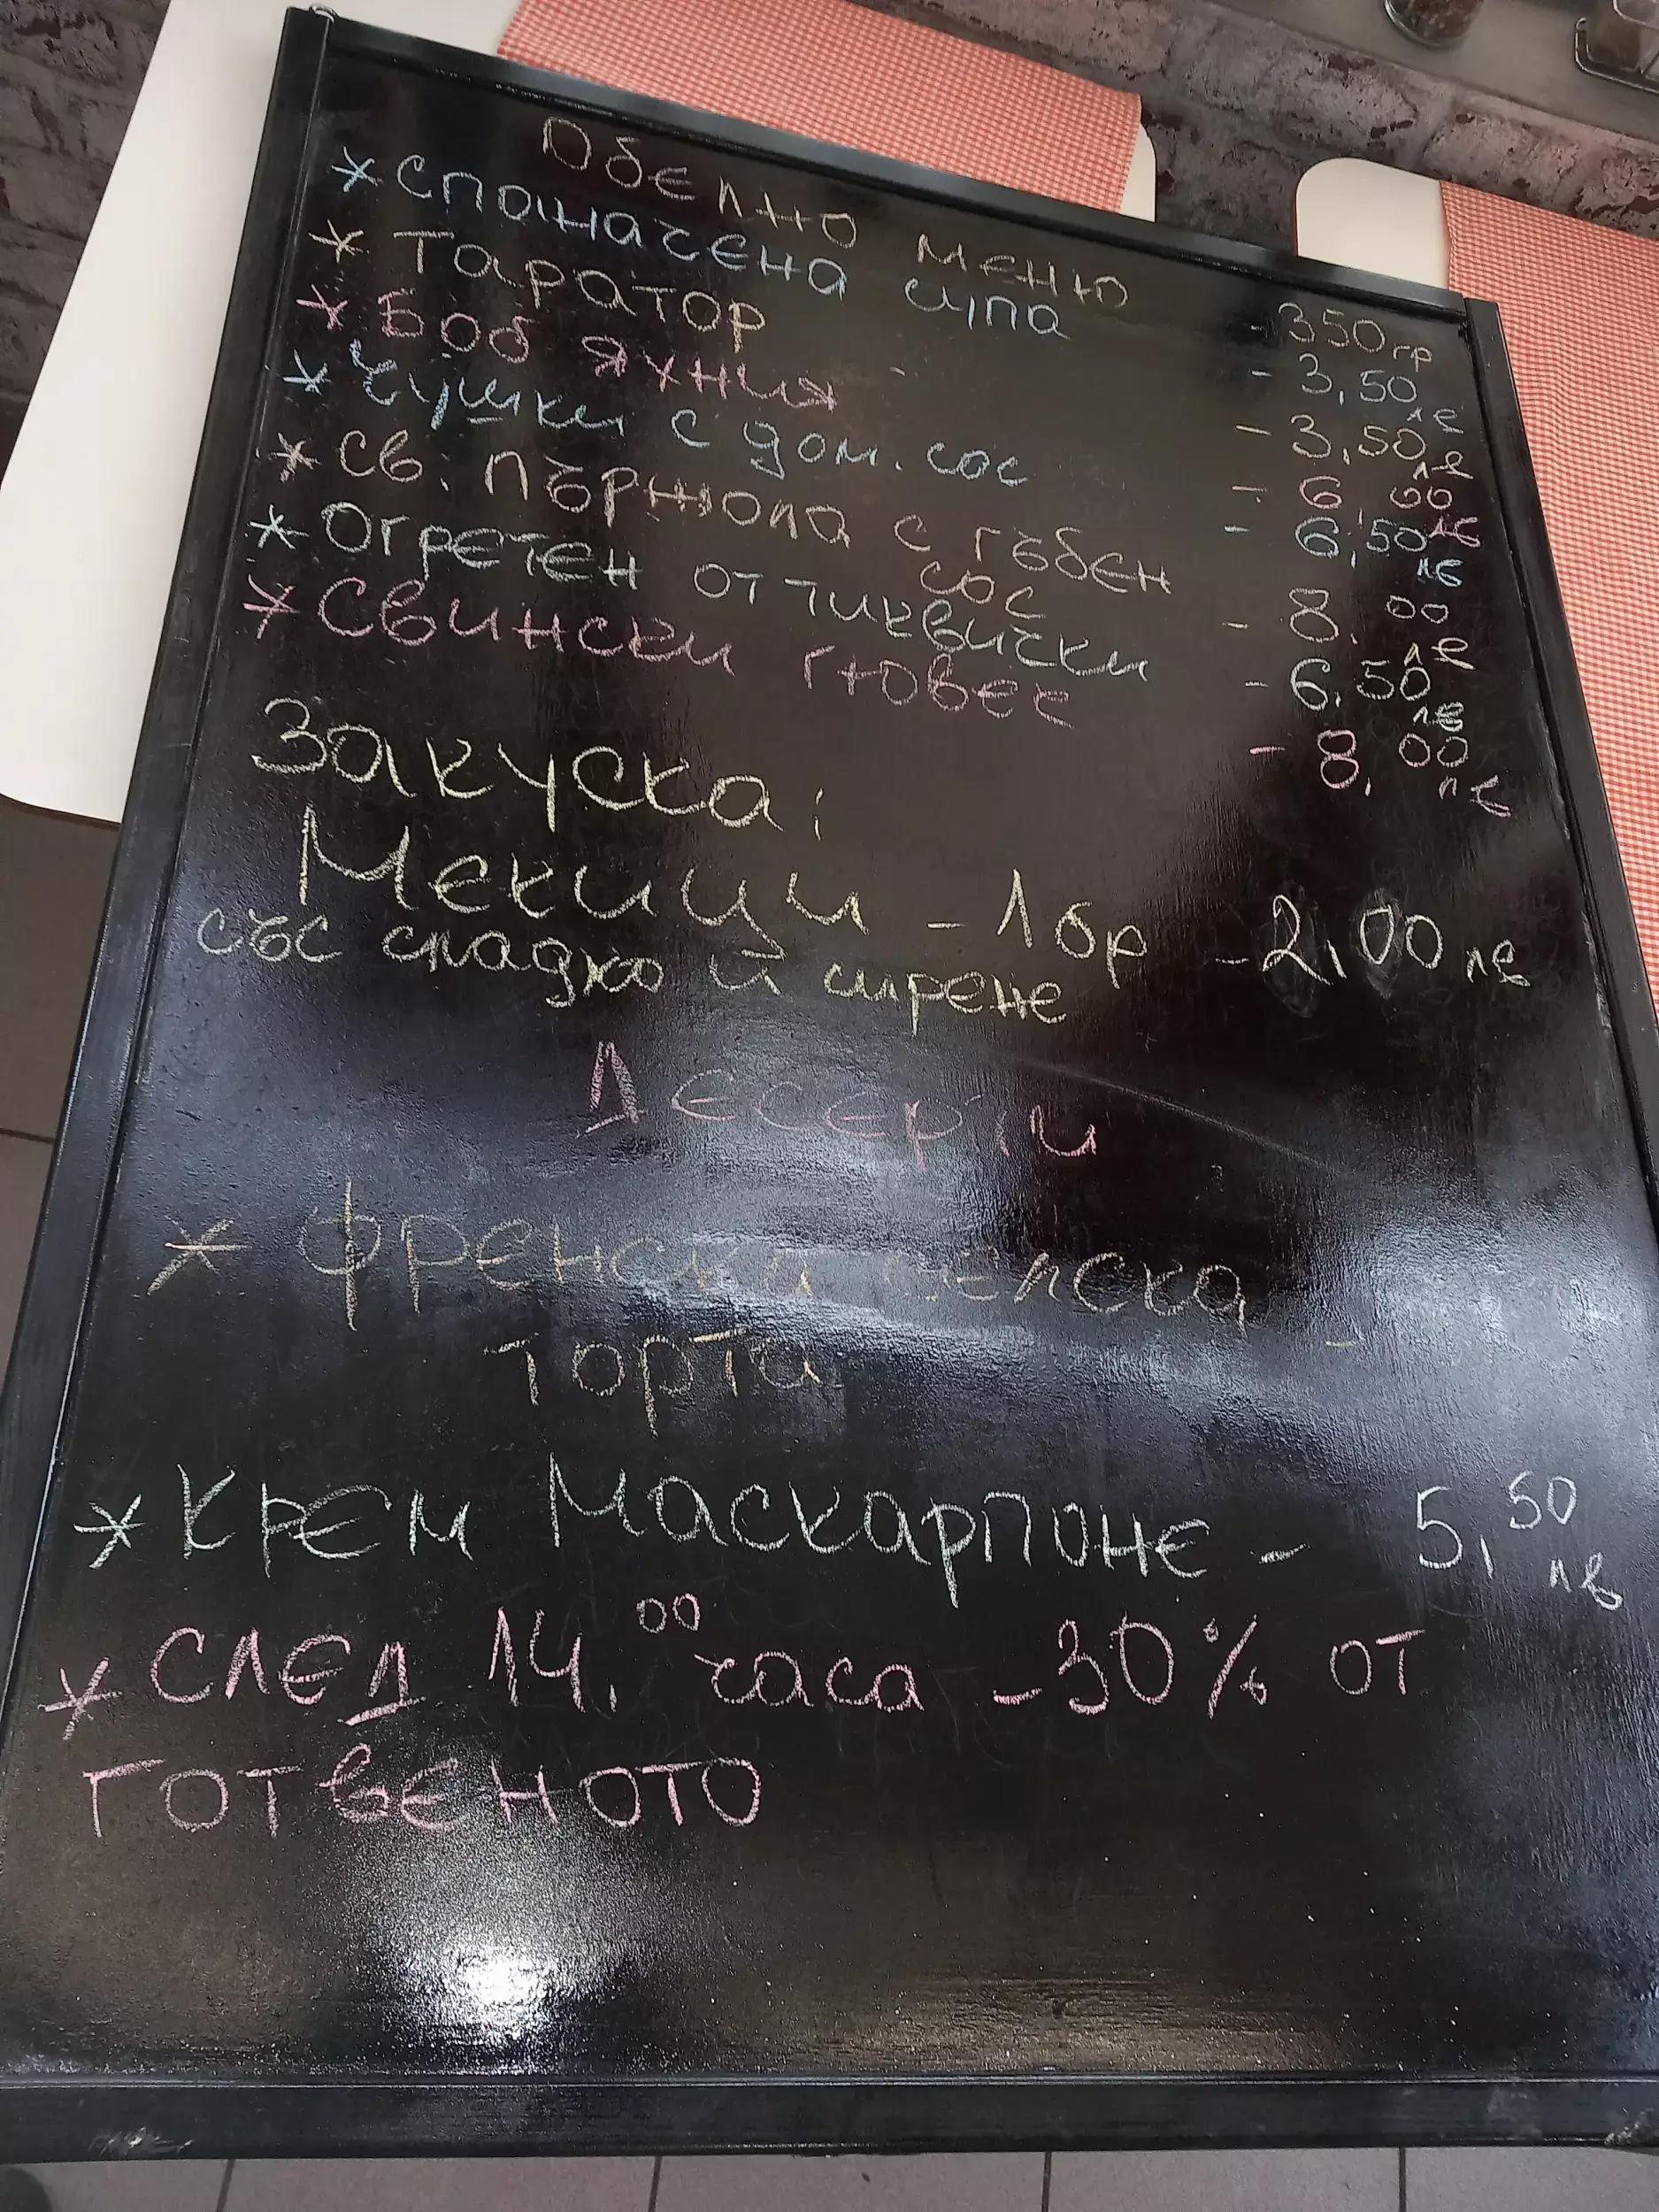 Обелно меню - 350 гр
* Спаначена супа - 3,50 лв
* Таратор - 3,50 лв
* Боб яхния - 6,00 лв
* Чушки с дом. сос - 6,50 лв
* Св. пържола с гъбен - 8.00 лв
сос
* Огретен от тиквички - 6.50 лв
* Свински гювеє - 8,00 лв
Закуска:
Мекици - 1 бр - 2,00 лв
със сладко и сирене
Десерти
* Френска селска -
торта
* Крем Маскарпоне - 5,50 лв
* След 14.00 часа - 30% от
готвеното